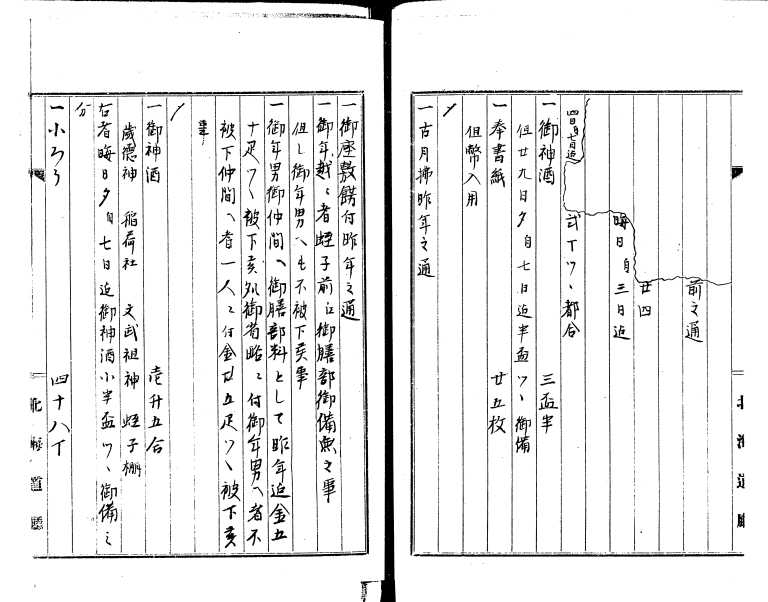 前之通
廿四
晦日自三日迄
弐丁ツヽ都合
四日自七日迄
一御神酒 三盃半
但廿九日夕自七日迄半盃ツヽ御備
一奉書紙 廿五枚
但幣入用
一古月拂昨年之通
北海道廳
一御座敷餝付昨年之通
一御年越之者蛭子前江御膳部御備無之事
但し御年男へも不被下候事
一御年男御仲間へ御膳部料として昨年迄金五
十疋ツヽ被下候処御省略ニ付御年男へ者不
被下仲間へ者一人ニ付金廿五疋ツヽ被下候
事
一御神酒 壱升五合
歳德神 稲荷社 文武祖神 蛭子棚
右者晦日夕自七日迄御神酒小半盃ツヽ御備之
分
一小ろう 四十八丁
北海道廳